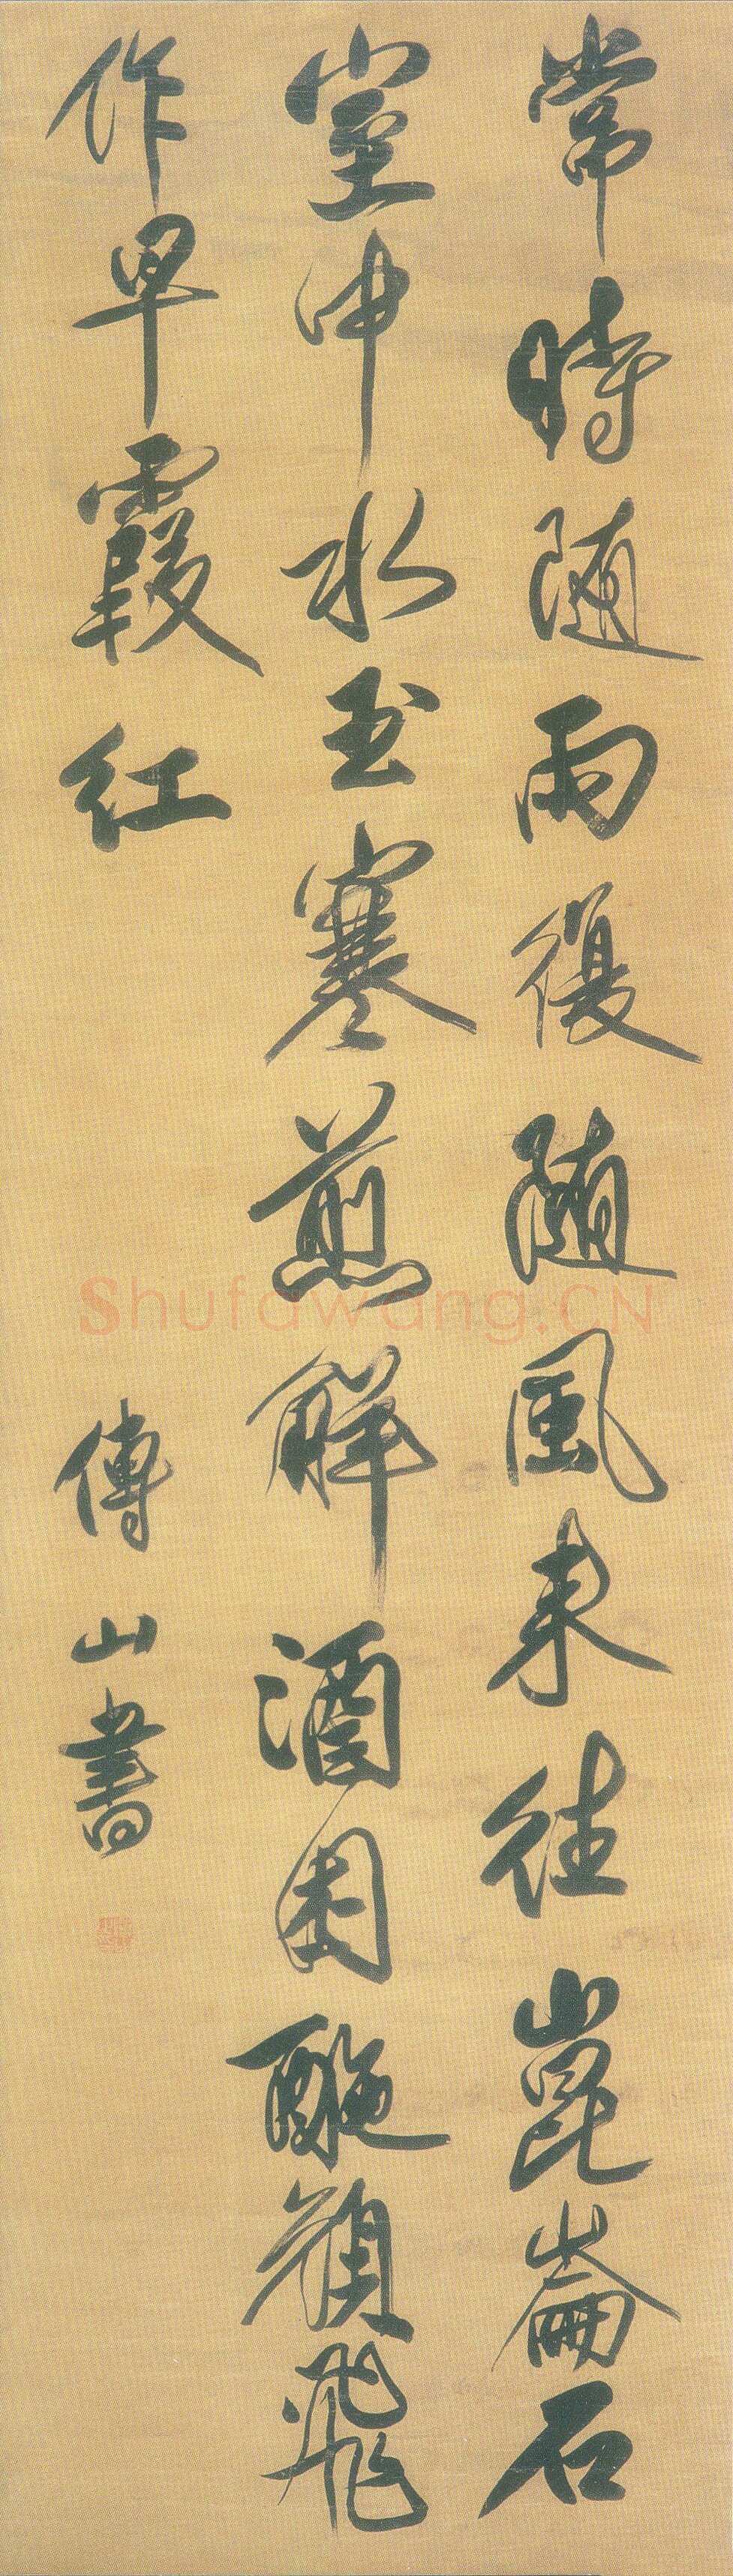 常時隨雨復隨風來往崑崙石
室中水玉寒煎解酒困酡顏飛
作早霞紅
傅山書
Shufawang.CN